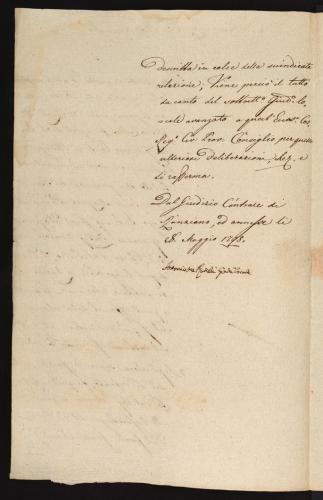 Descritta in calce della suindicata
relazione, Viene perciò il tutto
da canto del sottoscr.º Giudi-
ziale avanzato a quest' Eccels. Ces.
Reg.º Civ. Prov. Consiglio per quelle
ulteriori deliberazioni, &c. e
si rafferma.
Dal Giudizio Centrale di
ed annesse li
28. Maggio 1798.
Antonio de